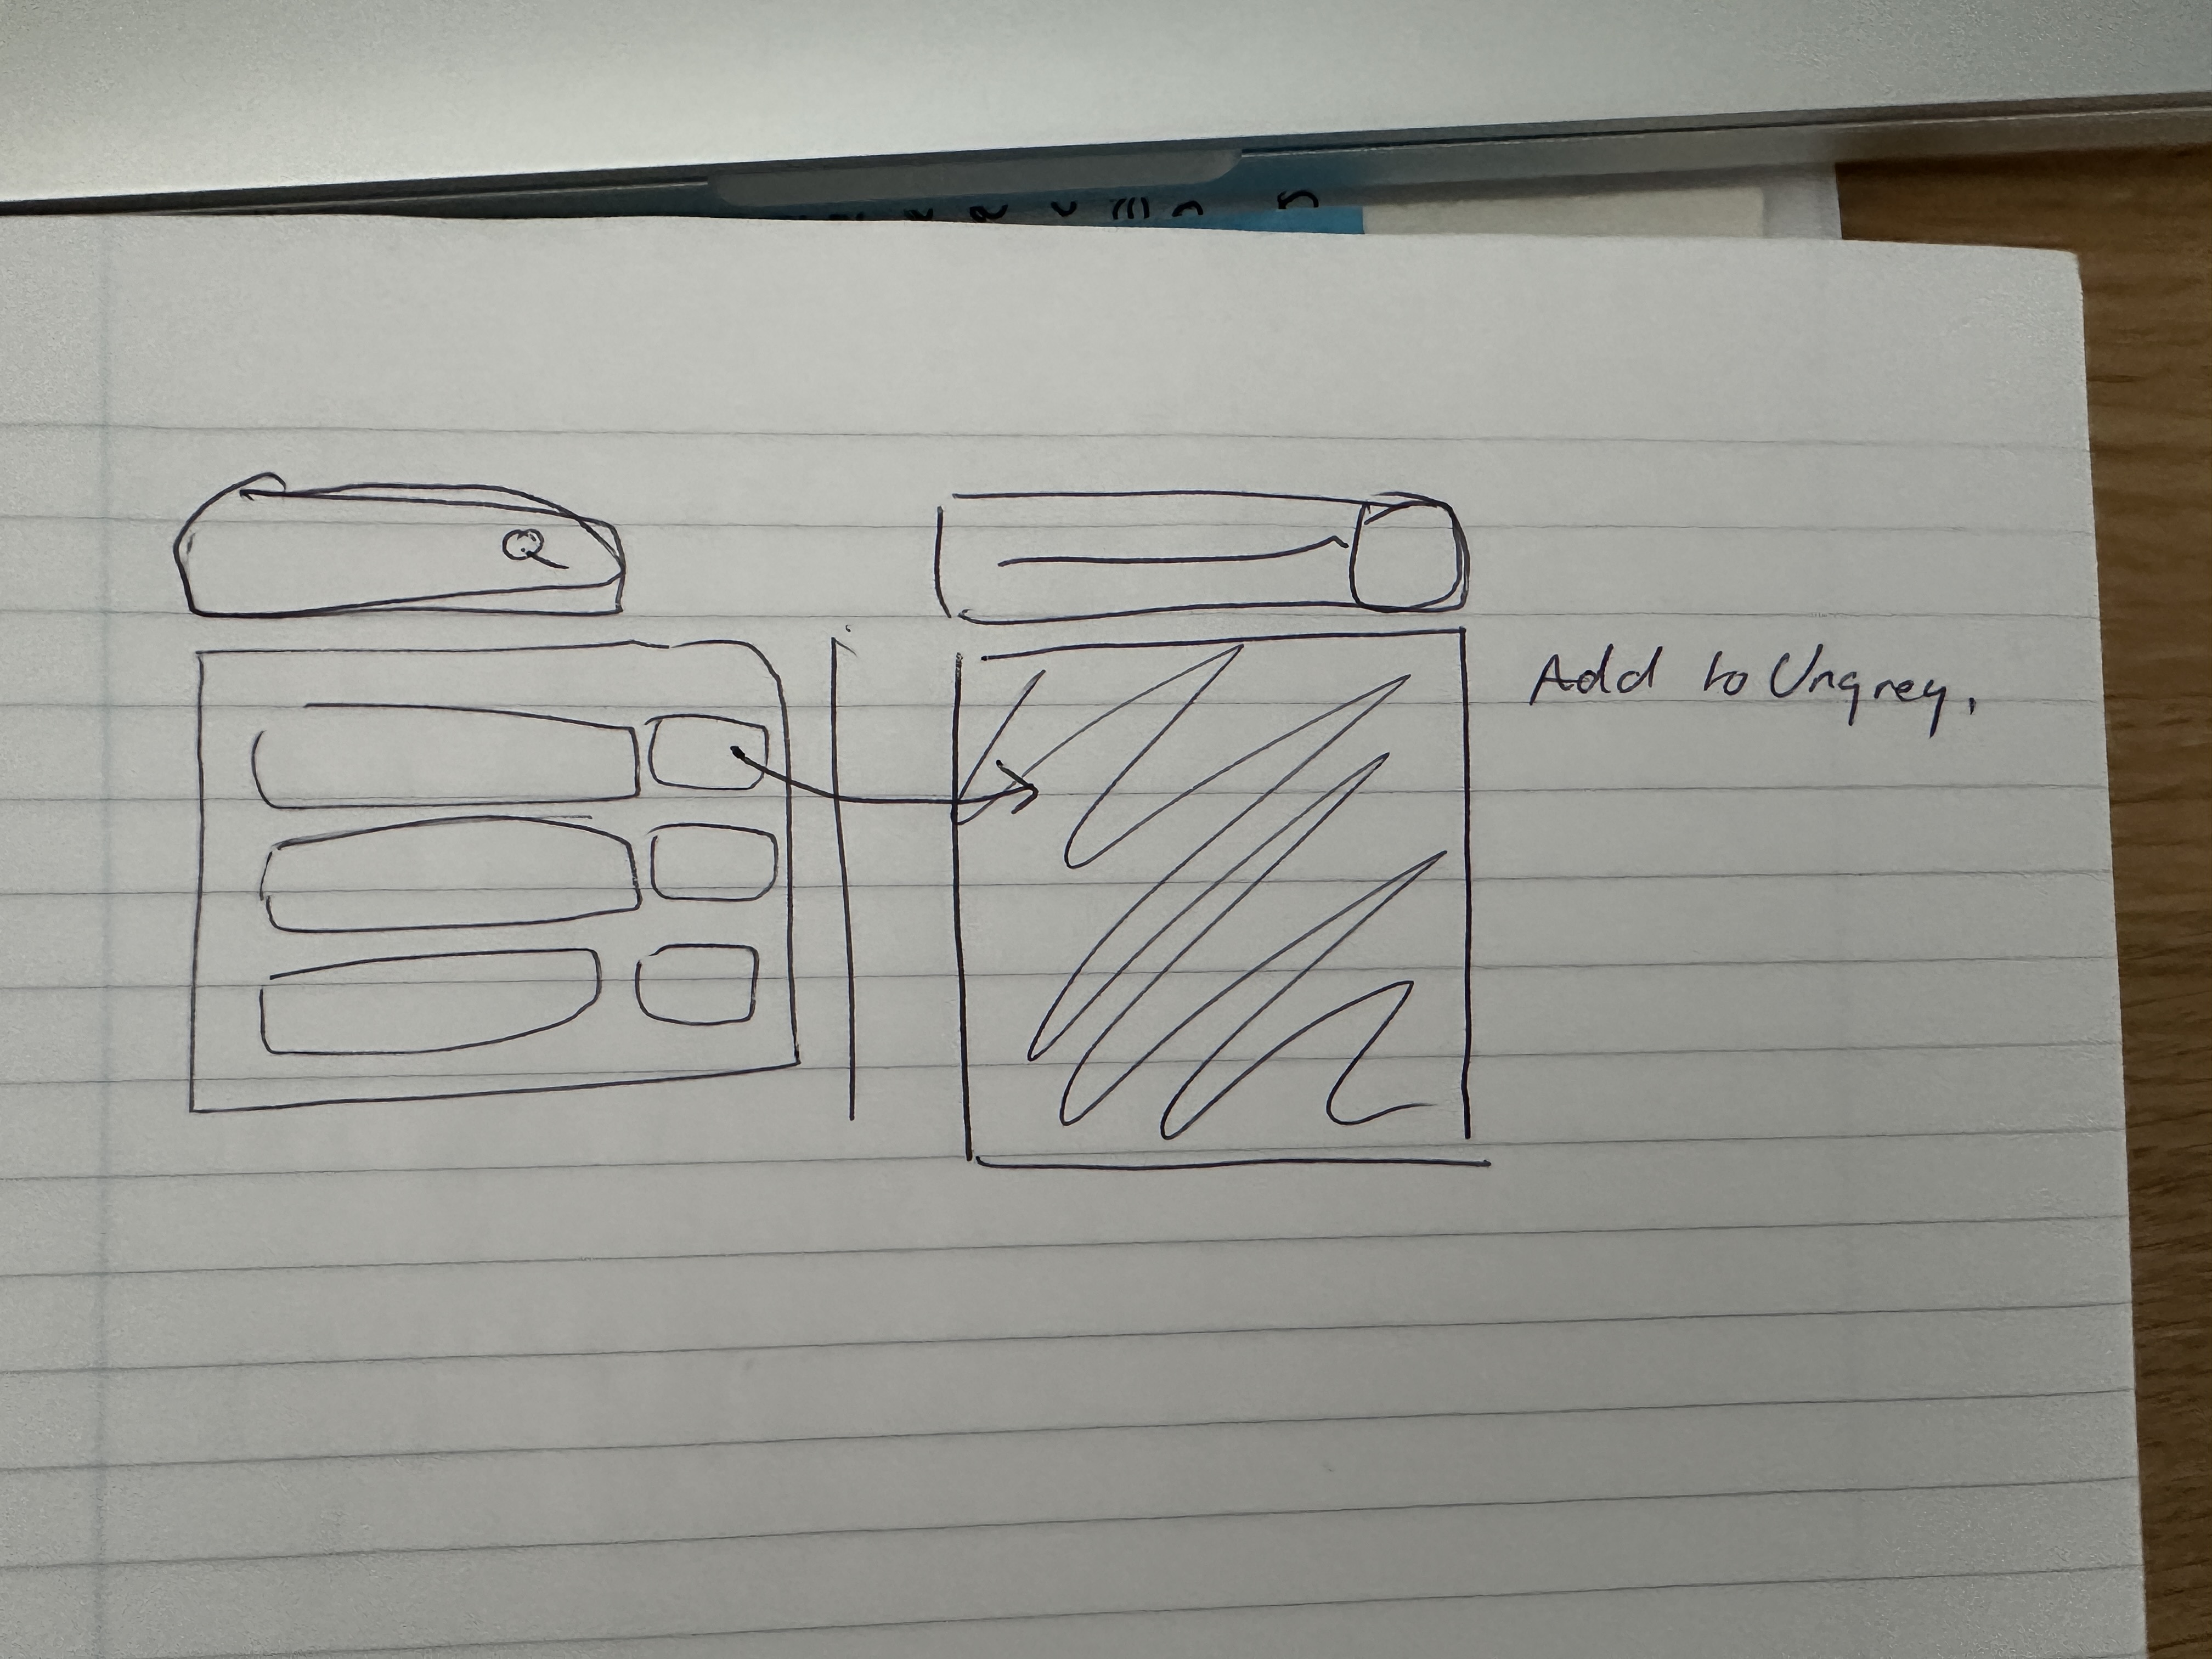 Add to Ungrey.